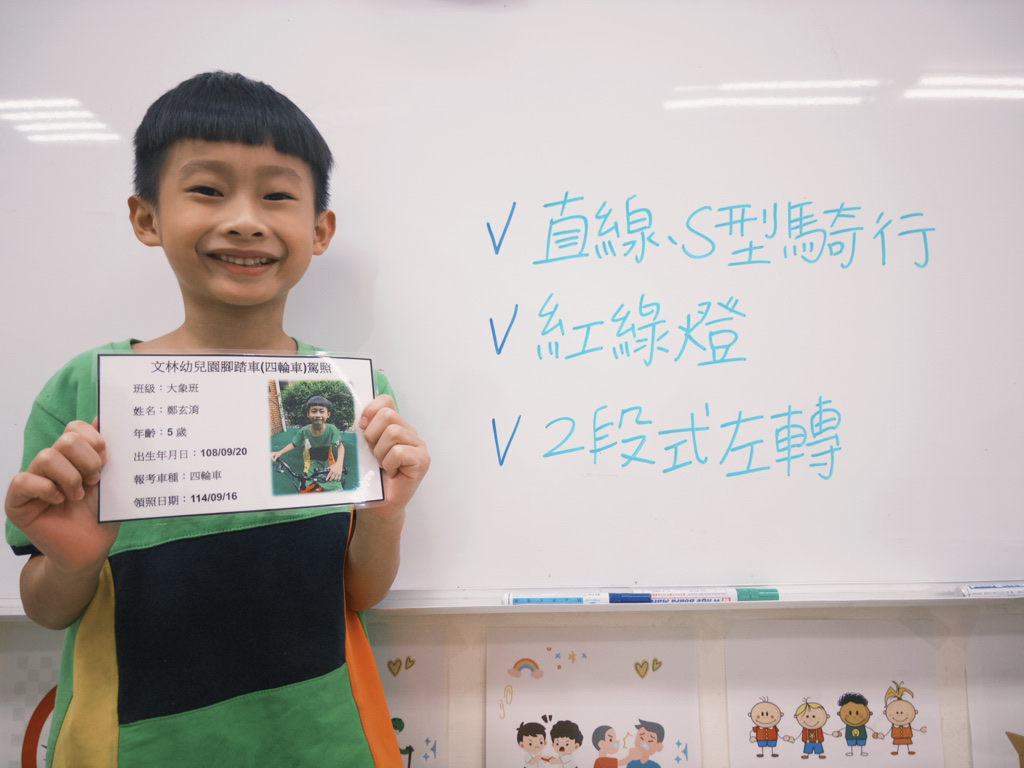 文林幼兒園腳踏車(四輪車)駕照
班級：大象班
姓名：鄭玄淯
年齡：5 歲
出生年月日：108/09/20
報考車種：四輪車
領照日期：114/09/16
✓ 直線、S型騎行
✓ 紅綠燈
✓ 2段式左轉